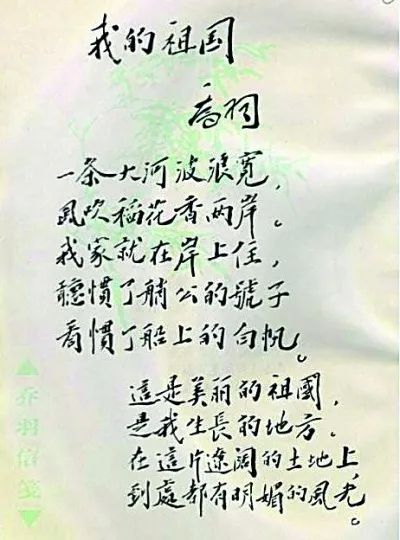 我的祖国
喬羽
一条大河波浪宽，
風吹稻花香两岸。
我家就在岸上住，
聽慣了艄公的號子
看慣了船上的白帆。
這是美丽的祖國，
是我生長的地方，
在這片遼阔的土地上，
到處都有明媚的風光。
乔羽信笺